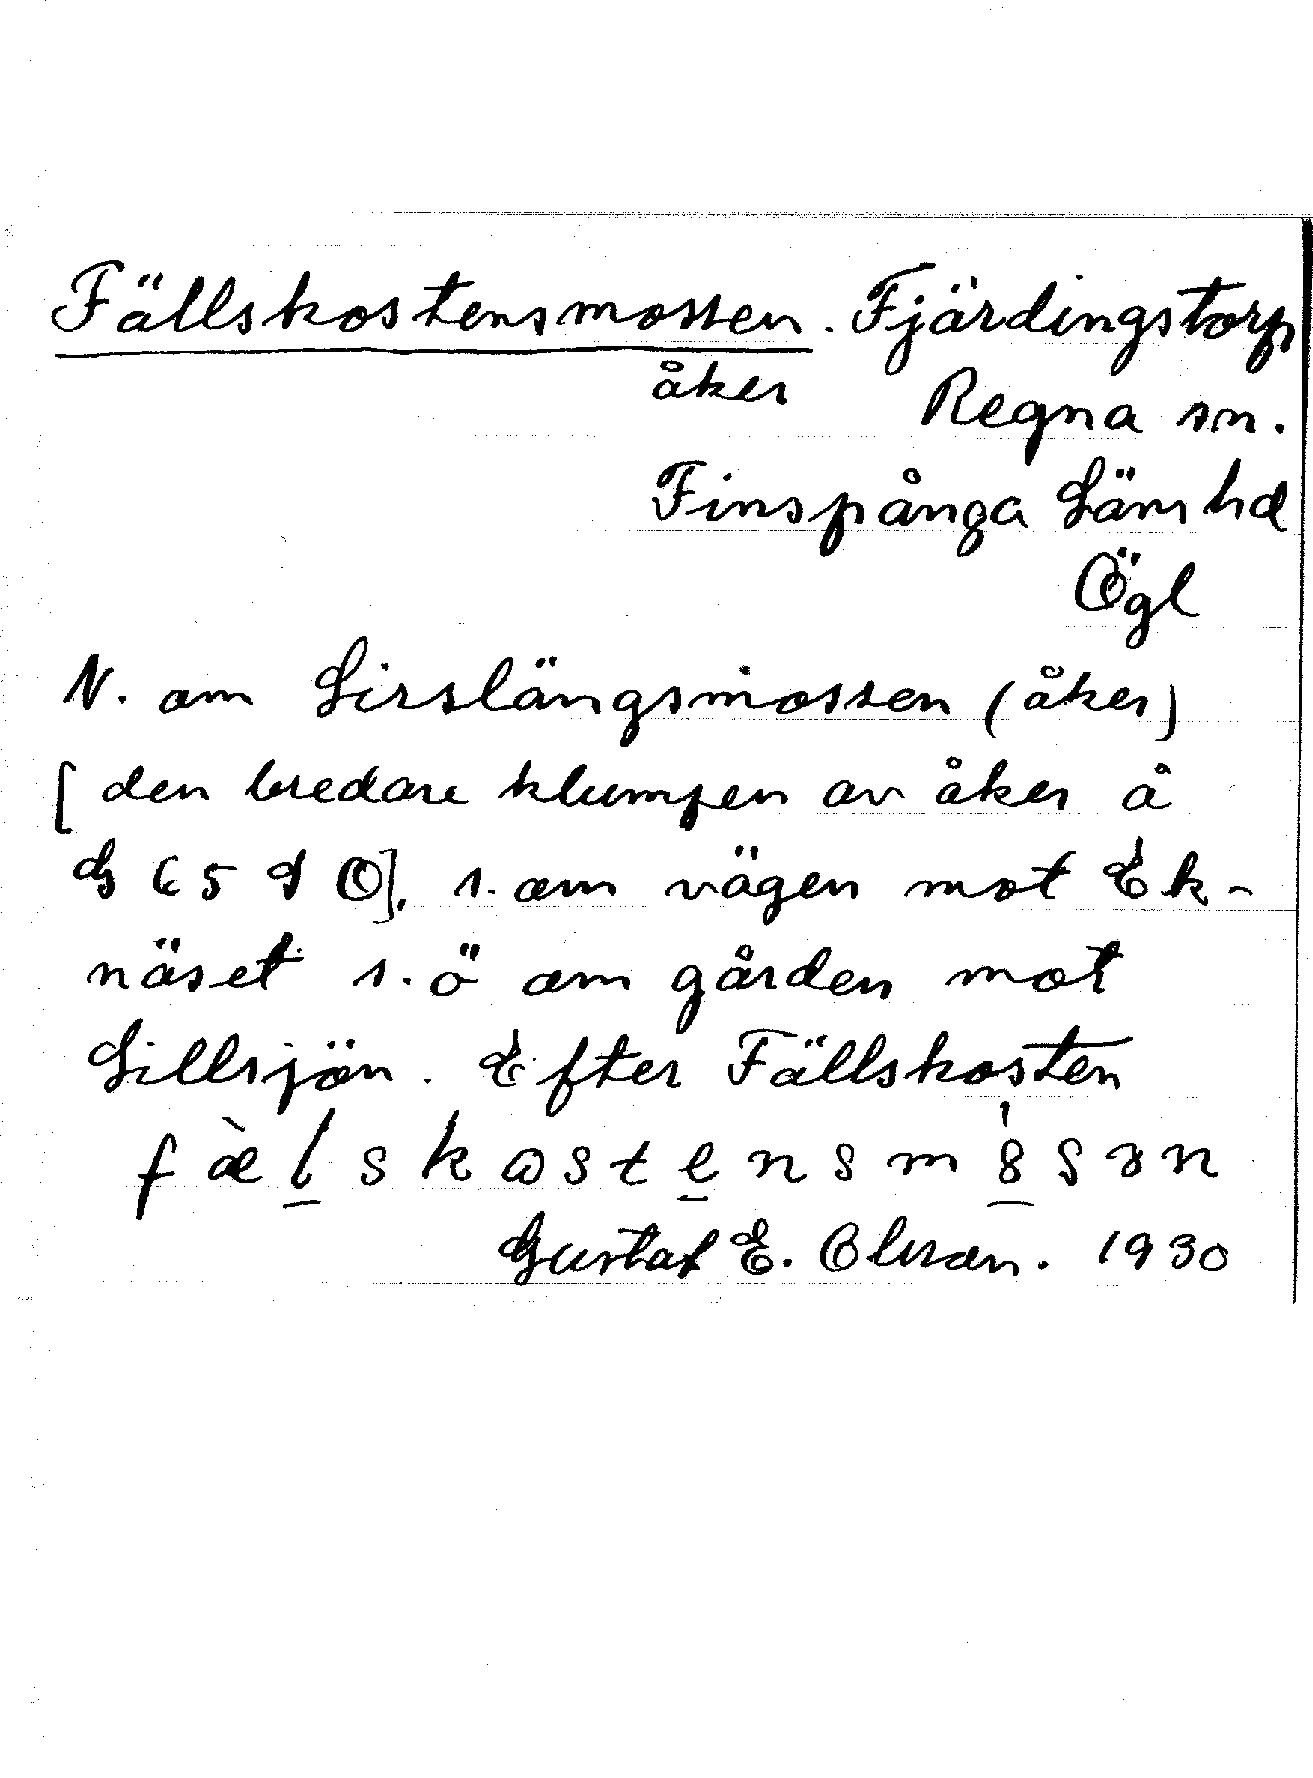 Fällskostensmossen. Fjärdingstorp
åker Regna sn.
Finspånga Läns hd
Ögl
N. om Lirslängsmossen (åker)
[den bredare klumpen av åker å
G 65 d O], s. om vägen mot Ek-
näset s. ö om gården mot
Lillsjön. Efter Fällskosten
Gustaf E. Olsson. 1930